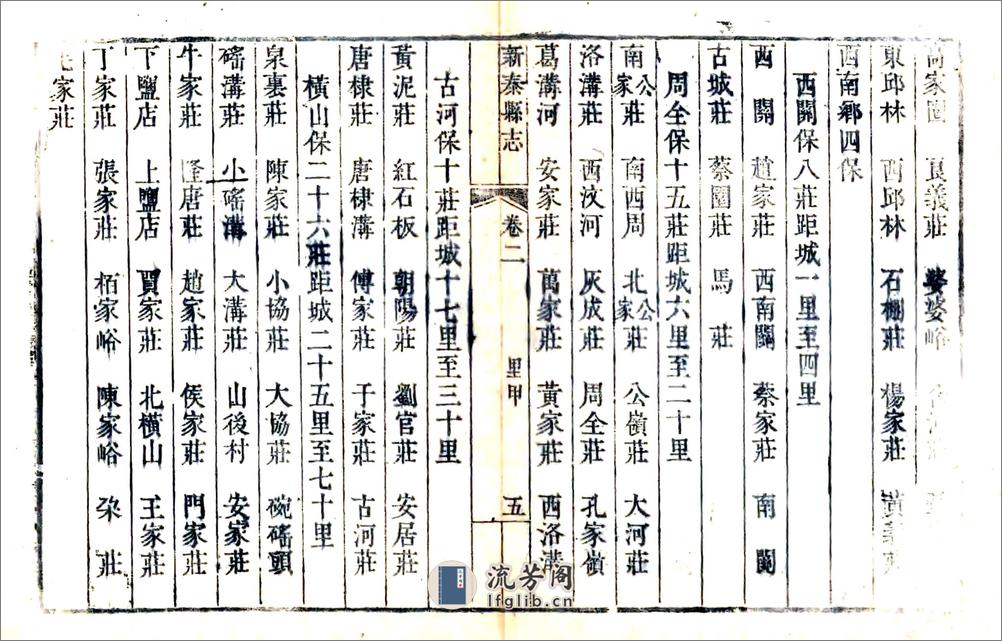 高家圈 良義莊 婆婆峪
東邱林 西邱林 石棚莊 楊家莊 黃義莊
西南鄉四保
西關保八莊距城一里至四里
西關 趙家莊 西南關 蔡家莊 南關
古城莊 蔡園莊 馬莊
周全保十五莊距城六里至二十里
南公家莊 南西周 北公家莊 公嶺莊 大河莊
洛溝莊 西汶河 灰成莊 周全莊 孔家嶺
葛溝河 安家莊 萬家莊 黃家莊 西洛溝
新泰縣志 卷二 里甲 五
古河保十莊距城十七里至三十里
黃泥莊 紅石板 朝陽莊 劉官莊 安居莊
唐棣莊 唐棣溝 傅家莊 于家莊 古河莊
橫山保二十六莊距城二十五里至七十里
泉裏莊 陳家莊 小協莊 大協莊 碗磘頭
磘溝莊 小磘溝 大溝莊 山後村 安家莊
牛家莊 隆唐莊 趙家莊 侯家莊 門家莊
下鹽店 上鹽店 賈家莊 北橫山 王家莊
丁家莊 張家莊 栢家峪 陳家峪 莊
家莊
流芳阁
lfglib.cn